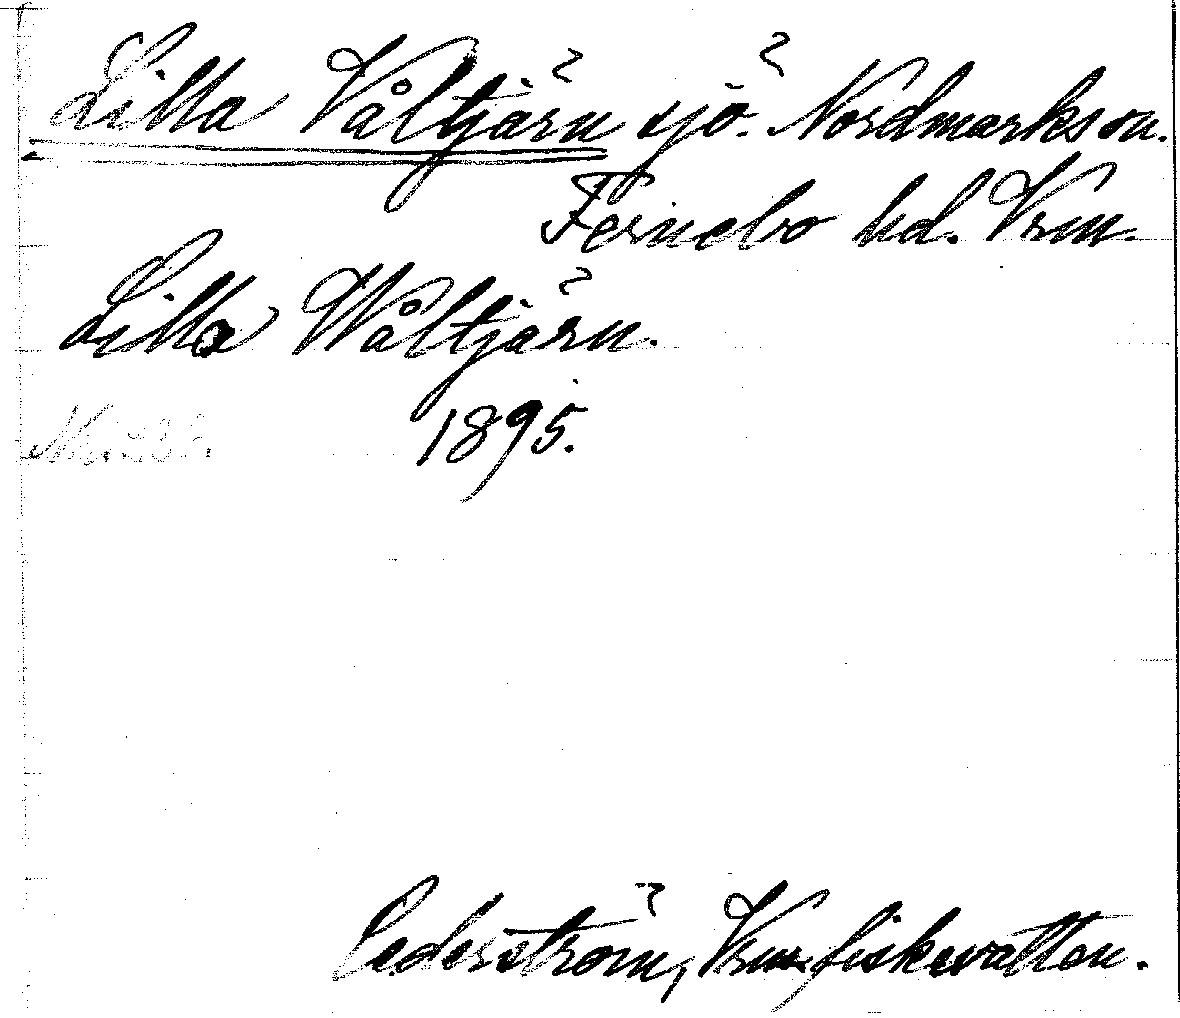 Lilla Våltjärn sjö. Nordmarks sn.
Fernebo hd. Vrm.
Lilla Wåltjärn.
1895.
Cederström, Vrm. fiskevatten.